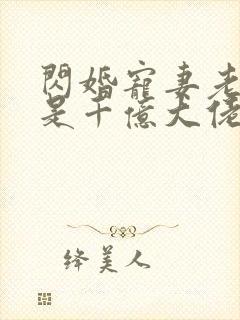 閃婚寵妻老
是千億大佬
绛美人